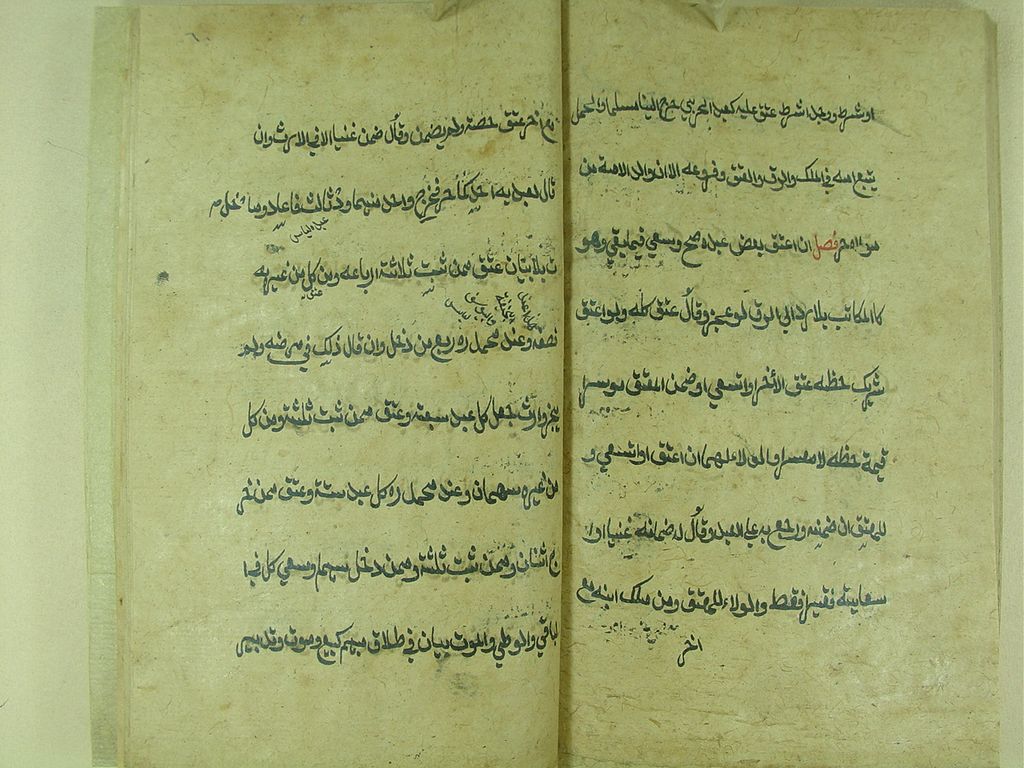 او شرط ووجد الشرط عتق عليه كعبد لحربي خرج الينا مسلما والحمل
يتبع امه في الملك والرق والعتق وفروعه الا ان ولد الامة من
مولاها حر فصل ان اعتق بعض عبده صح ويسعي فيما بقي وهو
كالمكاتب بلا رد الي الرق لو عجز وقالا عتق كله ولو اعتق
شريك حظه عتق الآخر او استسعي او ضمن المعتق موسرا
قيمة حظه لا معسرا والولاء لهما ان اعتق او استسعي و
للمعتق ان ضمنه ورجع به علي العبد وقالا له ضمانه غنيا او
سعايته فقيرا فقط والولاء للمعتق ومن ملك ابنه مع
اخر
حصة ولم يضمن وقالا ضمن غنيا الا في الارث وان
قال لعبديه احدكما حر فخرج واحد منهما ودخل ثالث فاعاد ومات
بلا بيان عتق ممن ثبت ثلاثة ارباعه ومن كل من غيره
نصفه وعند محمد ره ربع من دخل وان قال ذلك في مرضه ولم
يجز وارث جعل كل عبد سبعة وعتق ممن ثبت ثلثة ومن كل
من غيره سهمان وعند محمد ره كل عبد ستة وعتق ممن خر
ج اثنان وممن ثبت ثلثة وممن دخل سهم وسعي كل في
الباقي والوطي والموت بيان في طلاق مبهم كبيع وموت وتدبير